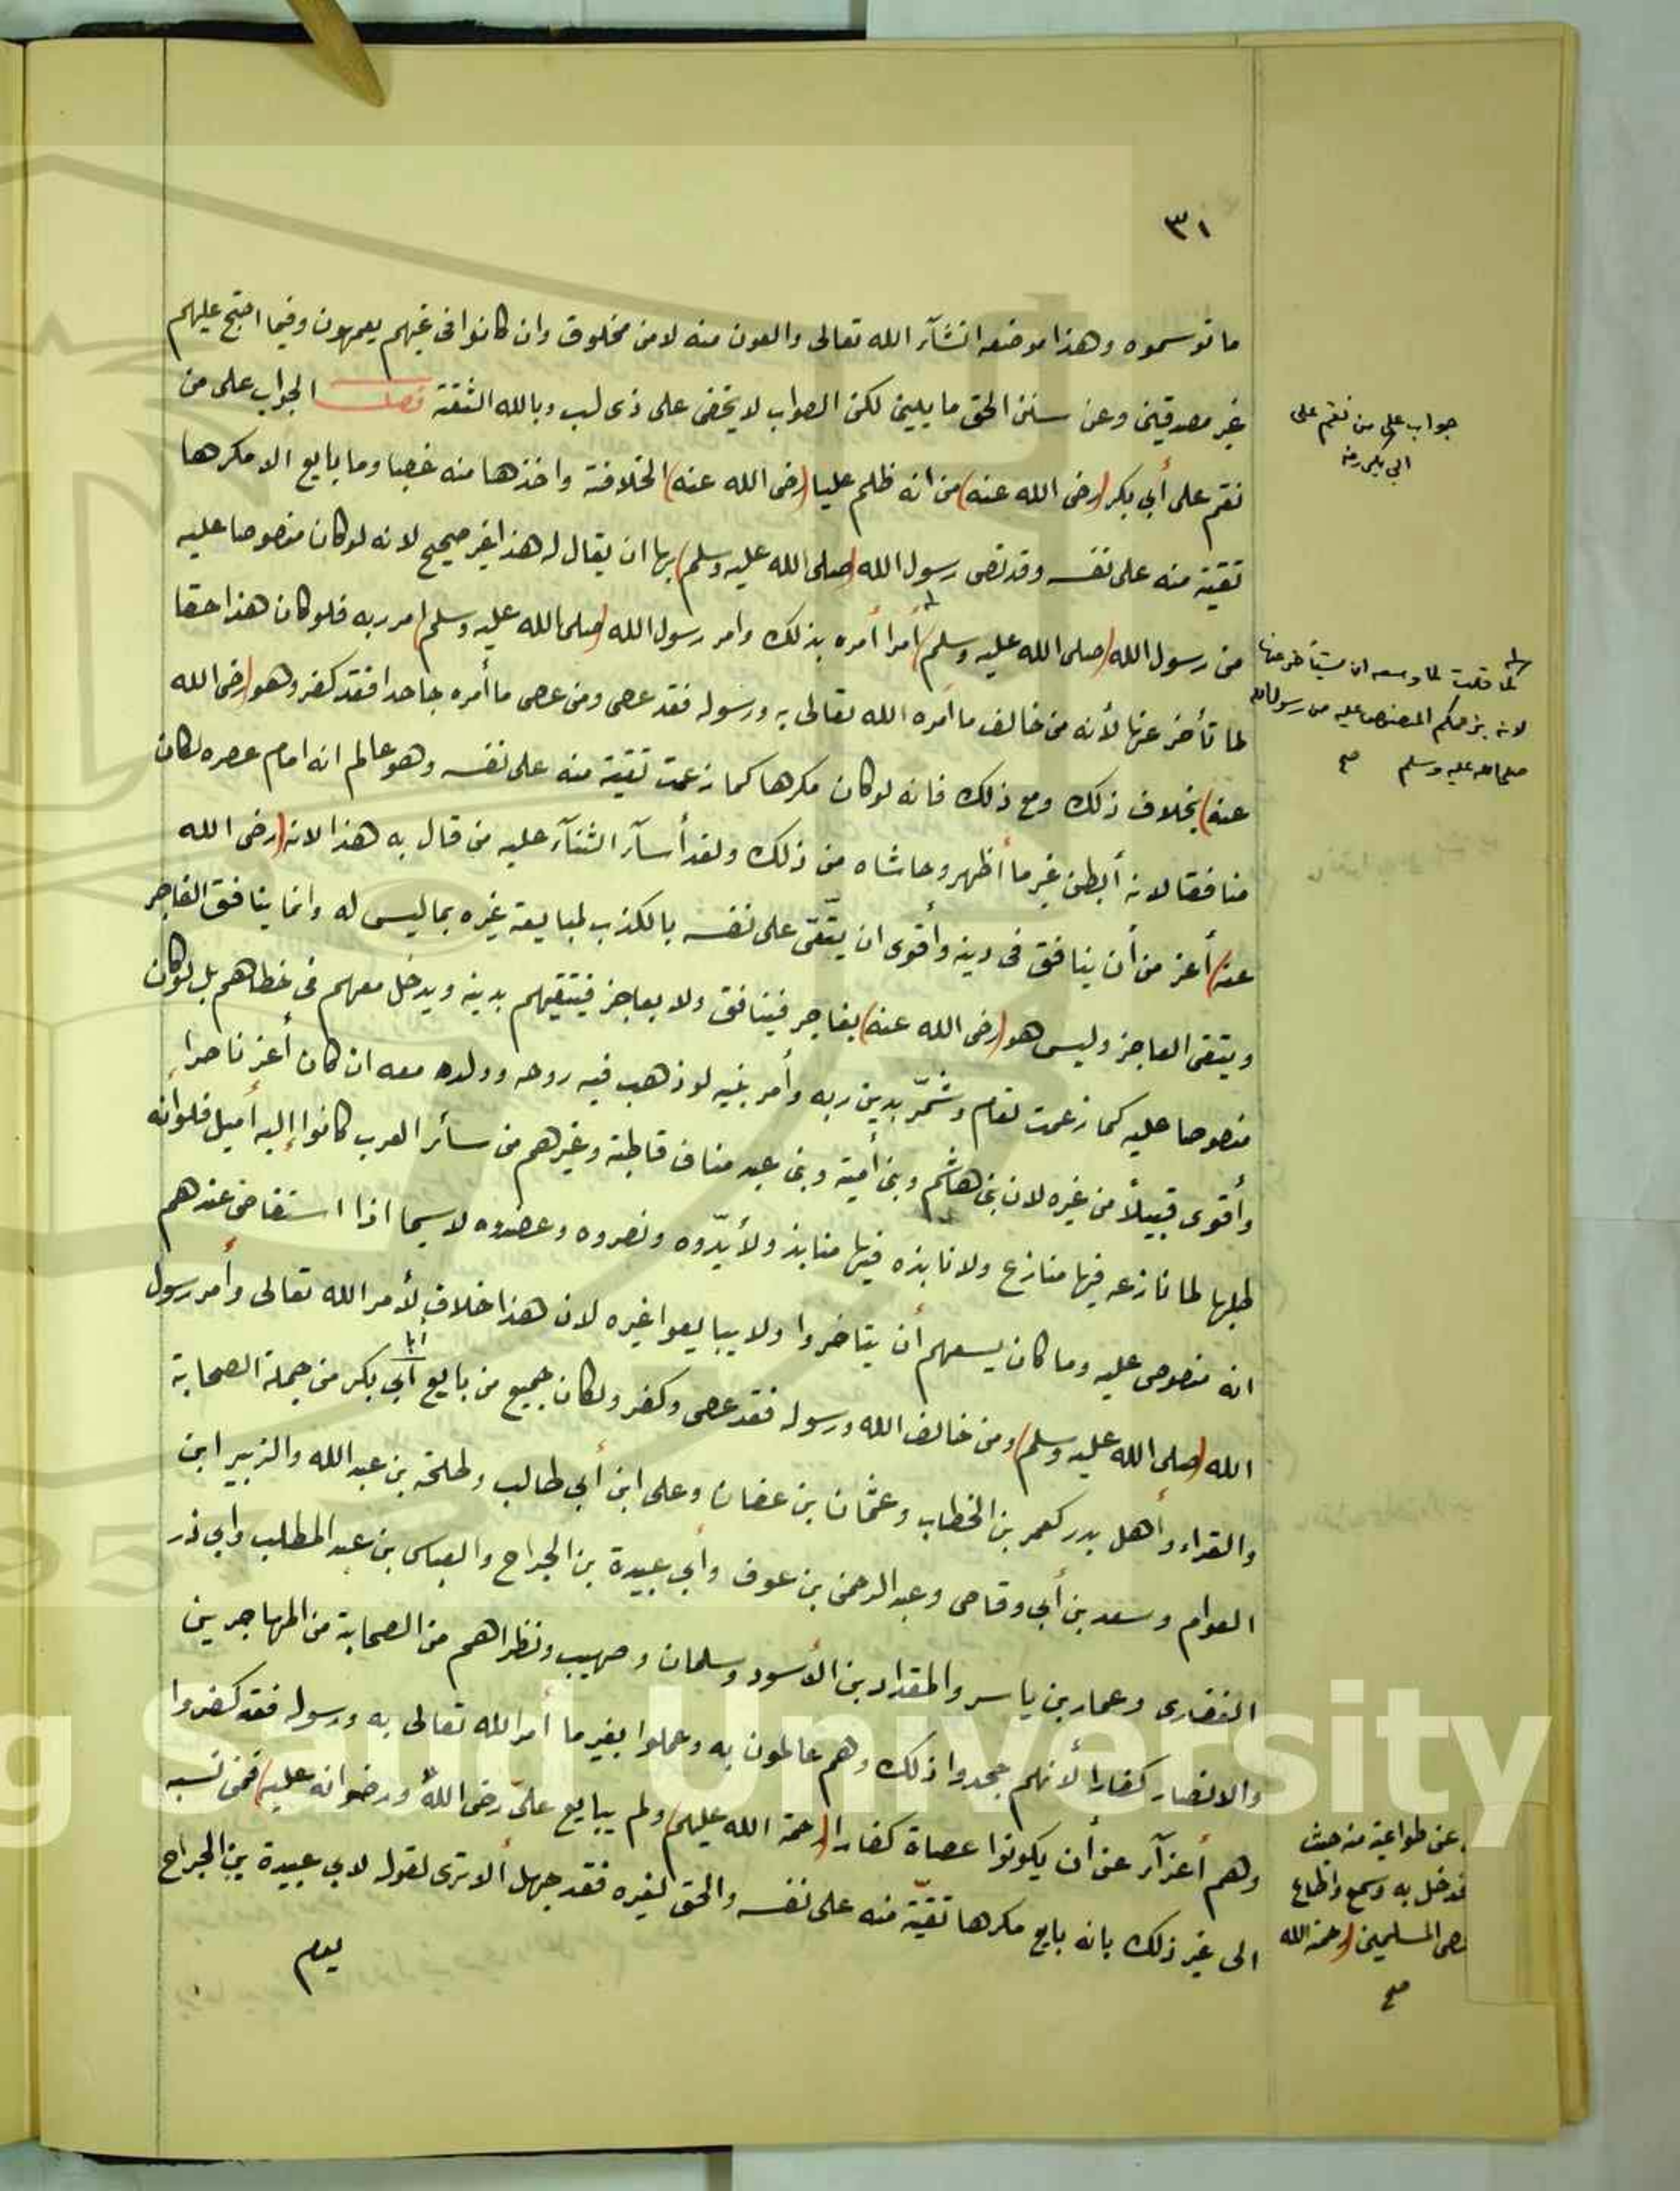 ٣١
ما توسموه وهذا موضعه انشآء الله تعالى والعون منه لا من مخلوق وان كانوا فى غيهم يعمهون وفيما احتج عليهم
غير مصدقين وعن سنن الحق مايلين لكن الصواب لا يخفى على ذى لب وبالله الثقة فصل الجواب على من
نقم على أبي بكر (رضى الله عنه) من انه ظلم عليا (رضى الله عنه) الخلافة واخذها منه غصبا وما بايع الا مكرها
تقية منه على نفسه وقد نص رسول الله (صلى الله عليه وسلم) بها ان يقال له هذا غير صحيح لانه لو كان منصوصا عليه
من رسول الله (صلى الله عليه وسلم) أمرا أمره بذلك وامر رسول الله (صلى الله عليه وسلم) امر ربه فلو كان هذا حقا
لما تأخر عنها لأنه من خالف ما أمره الله تعالى به ورسوله فقد عصى ومن عصى ما أمره جاحدا فقد كفر وهو (رضى الله
عنه) بخلاف ذلك ومع ذلك فانه لو كان مكرها كما زعمت تقية منه على نفسه وهو عالم انه امام عصره لكان
منافقا لانه أبطن غير ما أظهر وحاشاه من ذلك ولقد أسآء الثنآء عليه من قال به هذا لانه (رضى الله
عنه) أعز من أن ينافق فى دينه وأقوى ان يتّقى على نفسه بالكذب لمبايعة غيره بما ليس له وانما ينافق الفاجر
ويتقى العاجز وليس هو (رضى الله عنه) بفاجر فينافق ولا بعاجز فيتقيهم بدينه ويدخل معهم فى خطاهم بل لو كان
منصوصا عليه كما زعمت لقام وشمّر بدين ربه وأمر نبيه لو ذهب فيه روحه وولده معه ان كان أعز ناصرا
وأقوى قبيلاً من غيره لان بنى هاشم وبنى أمية وبنى عبد مناف قاطبة وغيرهم من سائر العرب كانوا إليه أميل فلو أنه
طلبها لما نازعه فيها منازع ولا نابذه فيها منابذ ولأيّدوه ونصروه وعضدوه لا سيما اذا استفاض عندهم
انه منصوص عليه وما كان يسعهم أن يتاخروا ولا يبايعوا غيره لان هذا خلاف لأمر الله تعالى وأمر رسول
الله (صلى الله عليه وسلم) ومن خالف الله ورسوله فقد عصى وكفر ولكان جميع من بايع أبي بكر من جملة الصحابة
والقراء وأهل بدر كعمر بن الخطاب وعثمان بن عفان وعلى ابن أبي طالب وطلحة بن عبد الله والزبير ابن
العوام وسعد بن أبي وقاص وعبد الرحمن بن عوف وأبي عبيدة بن الجراح والعباس بن عبد المطلب وابي ذر
الغفارى وعمار بن ياسر والمقداد بن الأسود وسلمان وصهيب ونظراهم من الصحابة من المهاجرين
والانصار كفارا لأنهم جحدوا ذلك وهم عالمون به وعملوا بغير ما أمر الله تعالى به ورسوله فقد كفروا
وهم أعزآء عن أن يكونوا عصاة كفارا (رحمة الله عليهم) ولم يبايع علىّ رضى الله ورضوانه عليه) فمن نسبه
الى غير ذلك بانه بايع مكرها تقيّة منه على نفسه والحق لغيره فقد جهل ألا ترى لقوله لابي عبيدة بن الجراح
يوم
جواب على من نقم على
ابي بكر رضه
لما قلت لما وسعه ان يتأخر عنها
لانه بزعمكم المنصوص عليه من رسول الله
صلى الله عليه وسلم صح
عن طواعية منه حيث
فدخل به وسمع واطاع
المسلمين (رحمة الله
صح
King Saud University